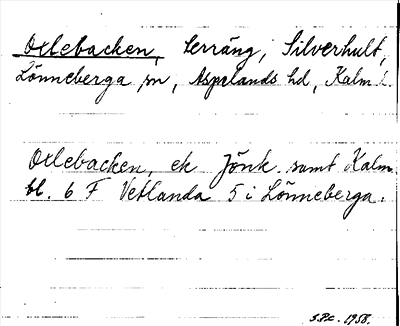 Oxlebacken, terräng, Silverhult,
Lönneberga sn, Aspelands hd, Kalm l.
Oxlebacken, ek Jönk. samt Kalm
bl. 6 F Vetlanda 5 i Lönneberga.
1958.